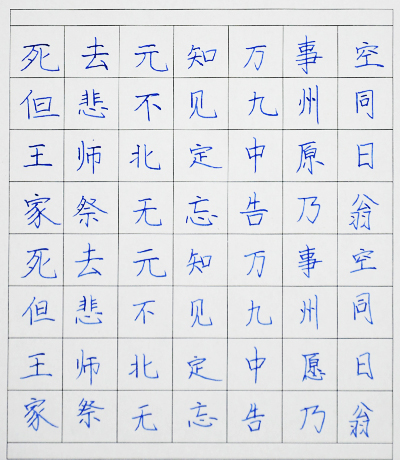 死去元知万事空
但悲不见九州同
王师北定中原日
家祭无忘告乃翁
死去元知万事空
但悲不见九州同
王师北定中愿日
家祭无忘告乃翁